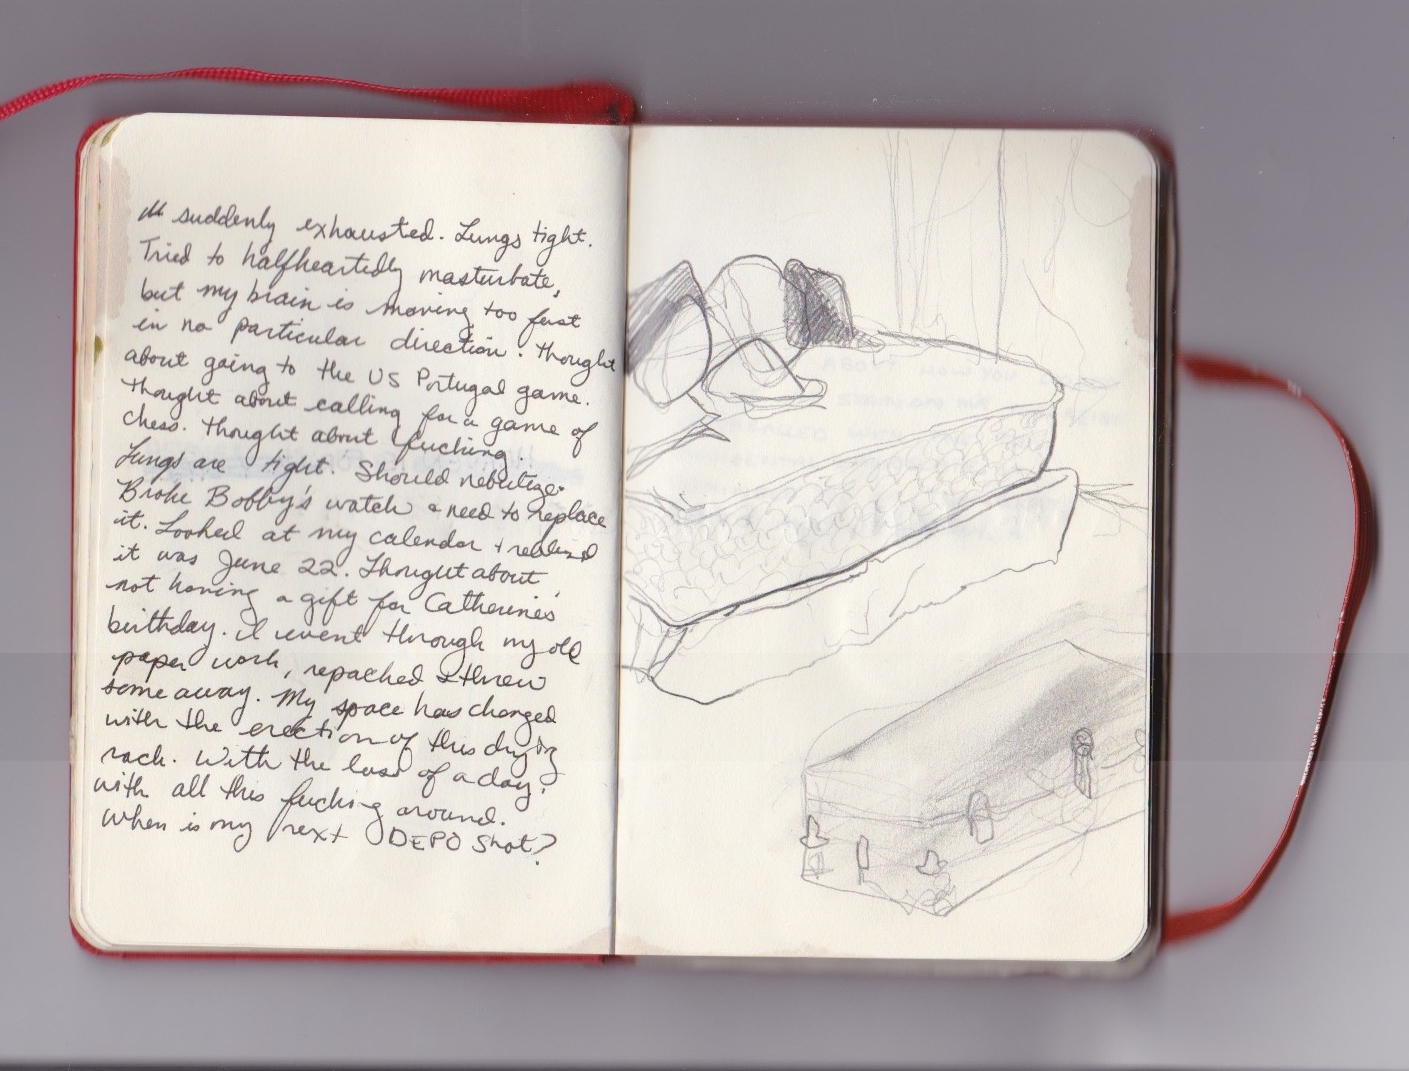 suddenly exhausted. Lungs tight.
Tried to halfheartedly masturbate,
but my brain is moving too fast
in no particular direction. Thought
about going to the US Portugal game.
Thought about calling for a game of
chess. Thought about fucking.
Lungs are tight. Should nebulize.
Broke Bobby's watch & need to replace
it. Looked at my calendar + realized
it was June 22. Thought about
not having a gift for Catherine's
birthday. I went through my old
paper work, repacked & threw
some away. My space has changed
with the erection of this drying
rack. With the loss of a day.
with all this fucking around.
When is my next DEPO shot?